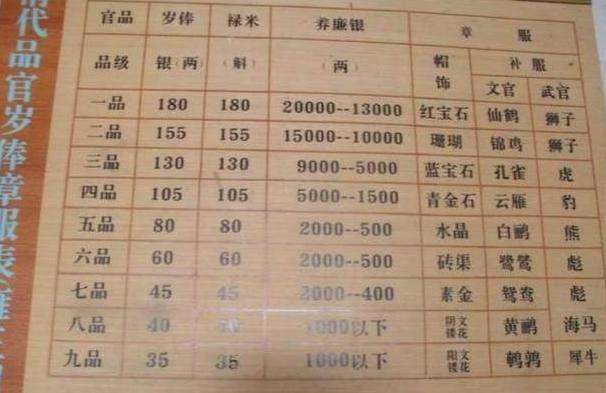 清代品官岁俸章服表(雍正
官品 岁俸 禄米 养廉银 章服
品级 银(两) (斛) (两) 帽饰 补服
文官 武官
一品 180 180 20000--13000 红宝石 仙鹤 狮子
二品 155 155 15000--10000 珊瑚 锦鸡 狮子
三品 130 130 9000--5000 蓝宝石 孔雀 虎
四品 105 105 5000--1500 青金石 云雁 豹
五品 80 80 2000--500 水晶 白鹇 熊
六品 60 60 2000--500 砖渠 鹭鸶 彪
七品 45 45 2000--400 素金 鸳鸯 彪
八品 40 40 1000以下 阴文镂花 黄鹂 海马
九品 35 35 1000以下 阳文镂花 鹌鹑 犀牛